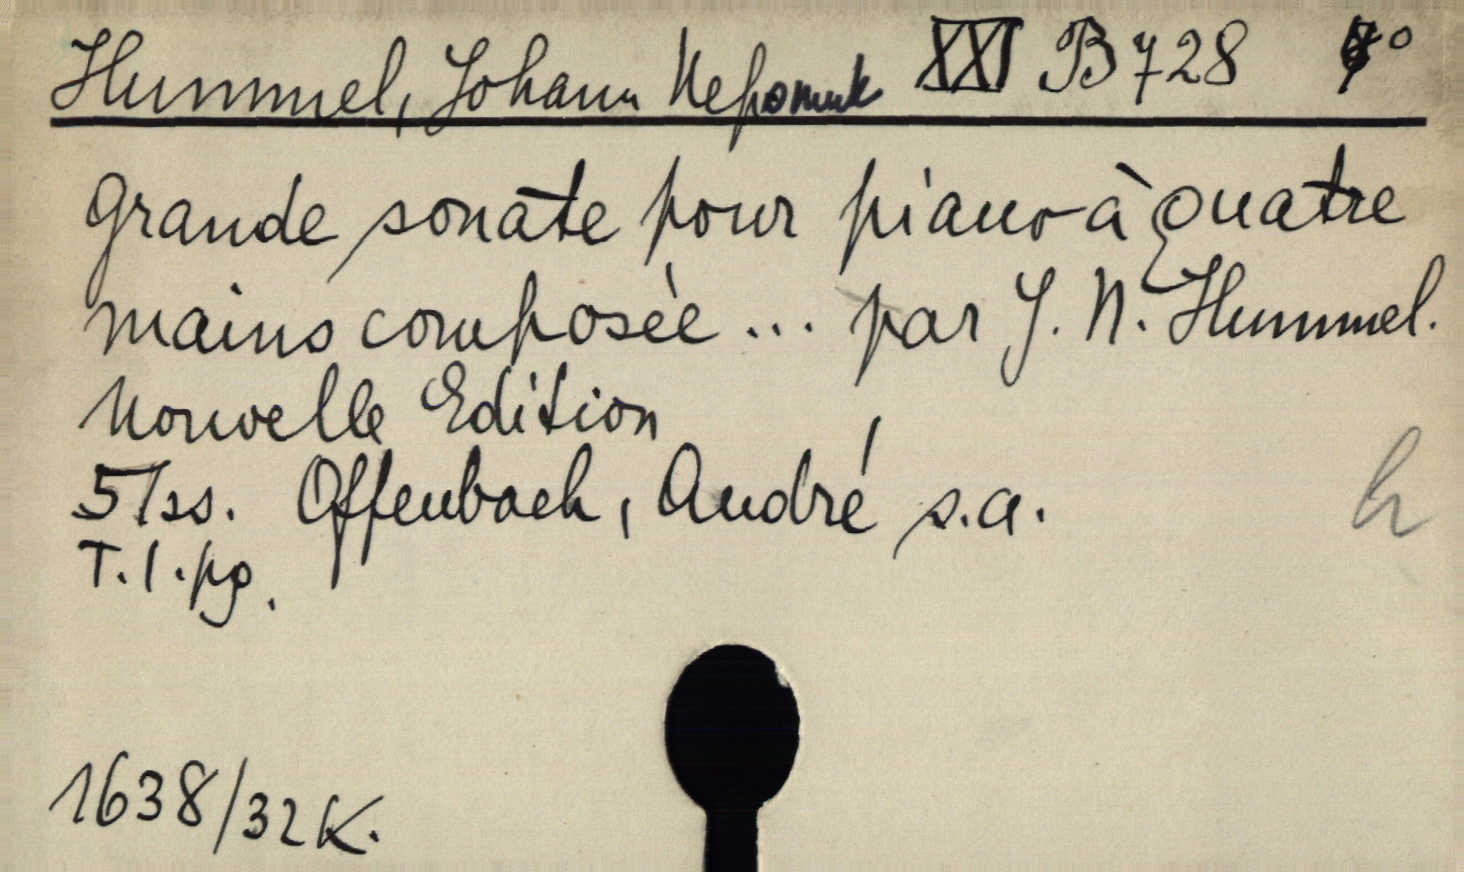 Hummel, Johann Nepomuk XXI B 728
Grande sonate pour piano à quatre
mains composée ... par J. N. Hummel.
Nouvelle Edition
51 ss. Offenbach, André s.a.
T. 1. pg.
h
1638/32 K.